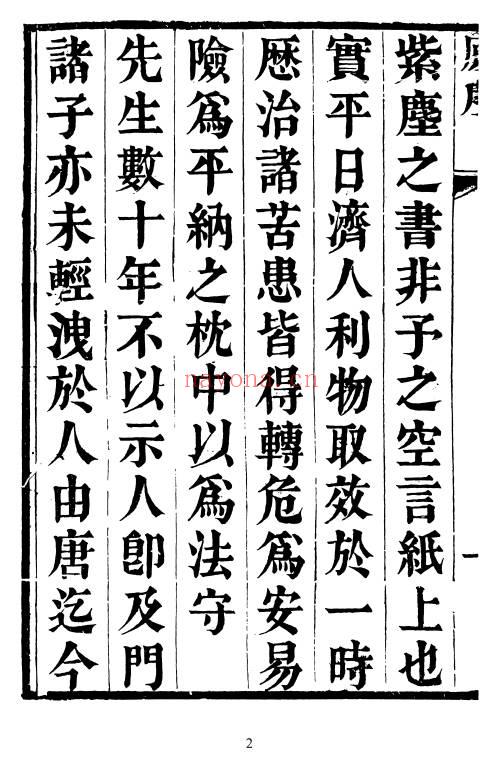 紫塵之書非予之空言紙上也
實平日濟人利物取效於一時
歷治諸苦患皆得轉危爲安易
險爲平納之枕中以爲法守
先生數十年不以示人卽及門
諸子亦未輕洩於人由唐迄今
一
nayona.cn
2